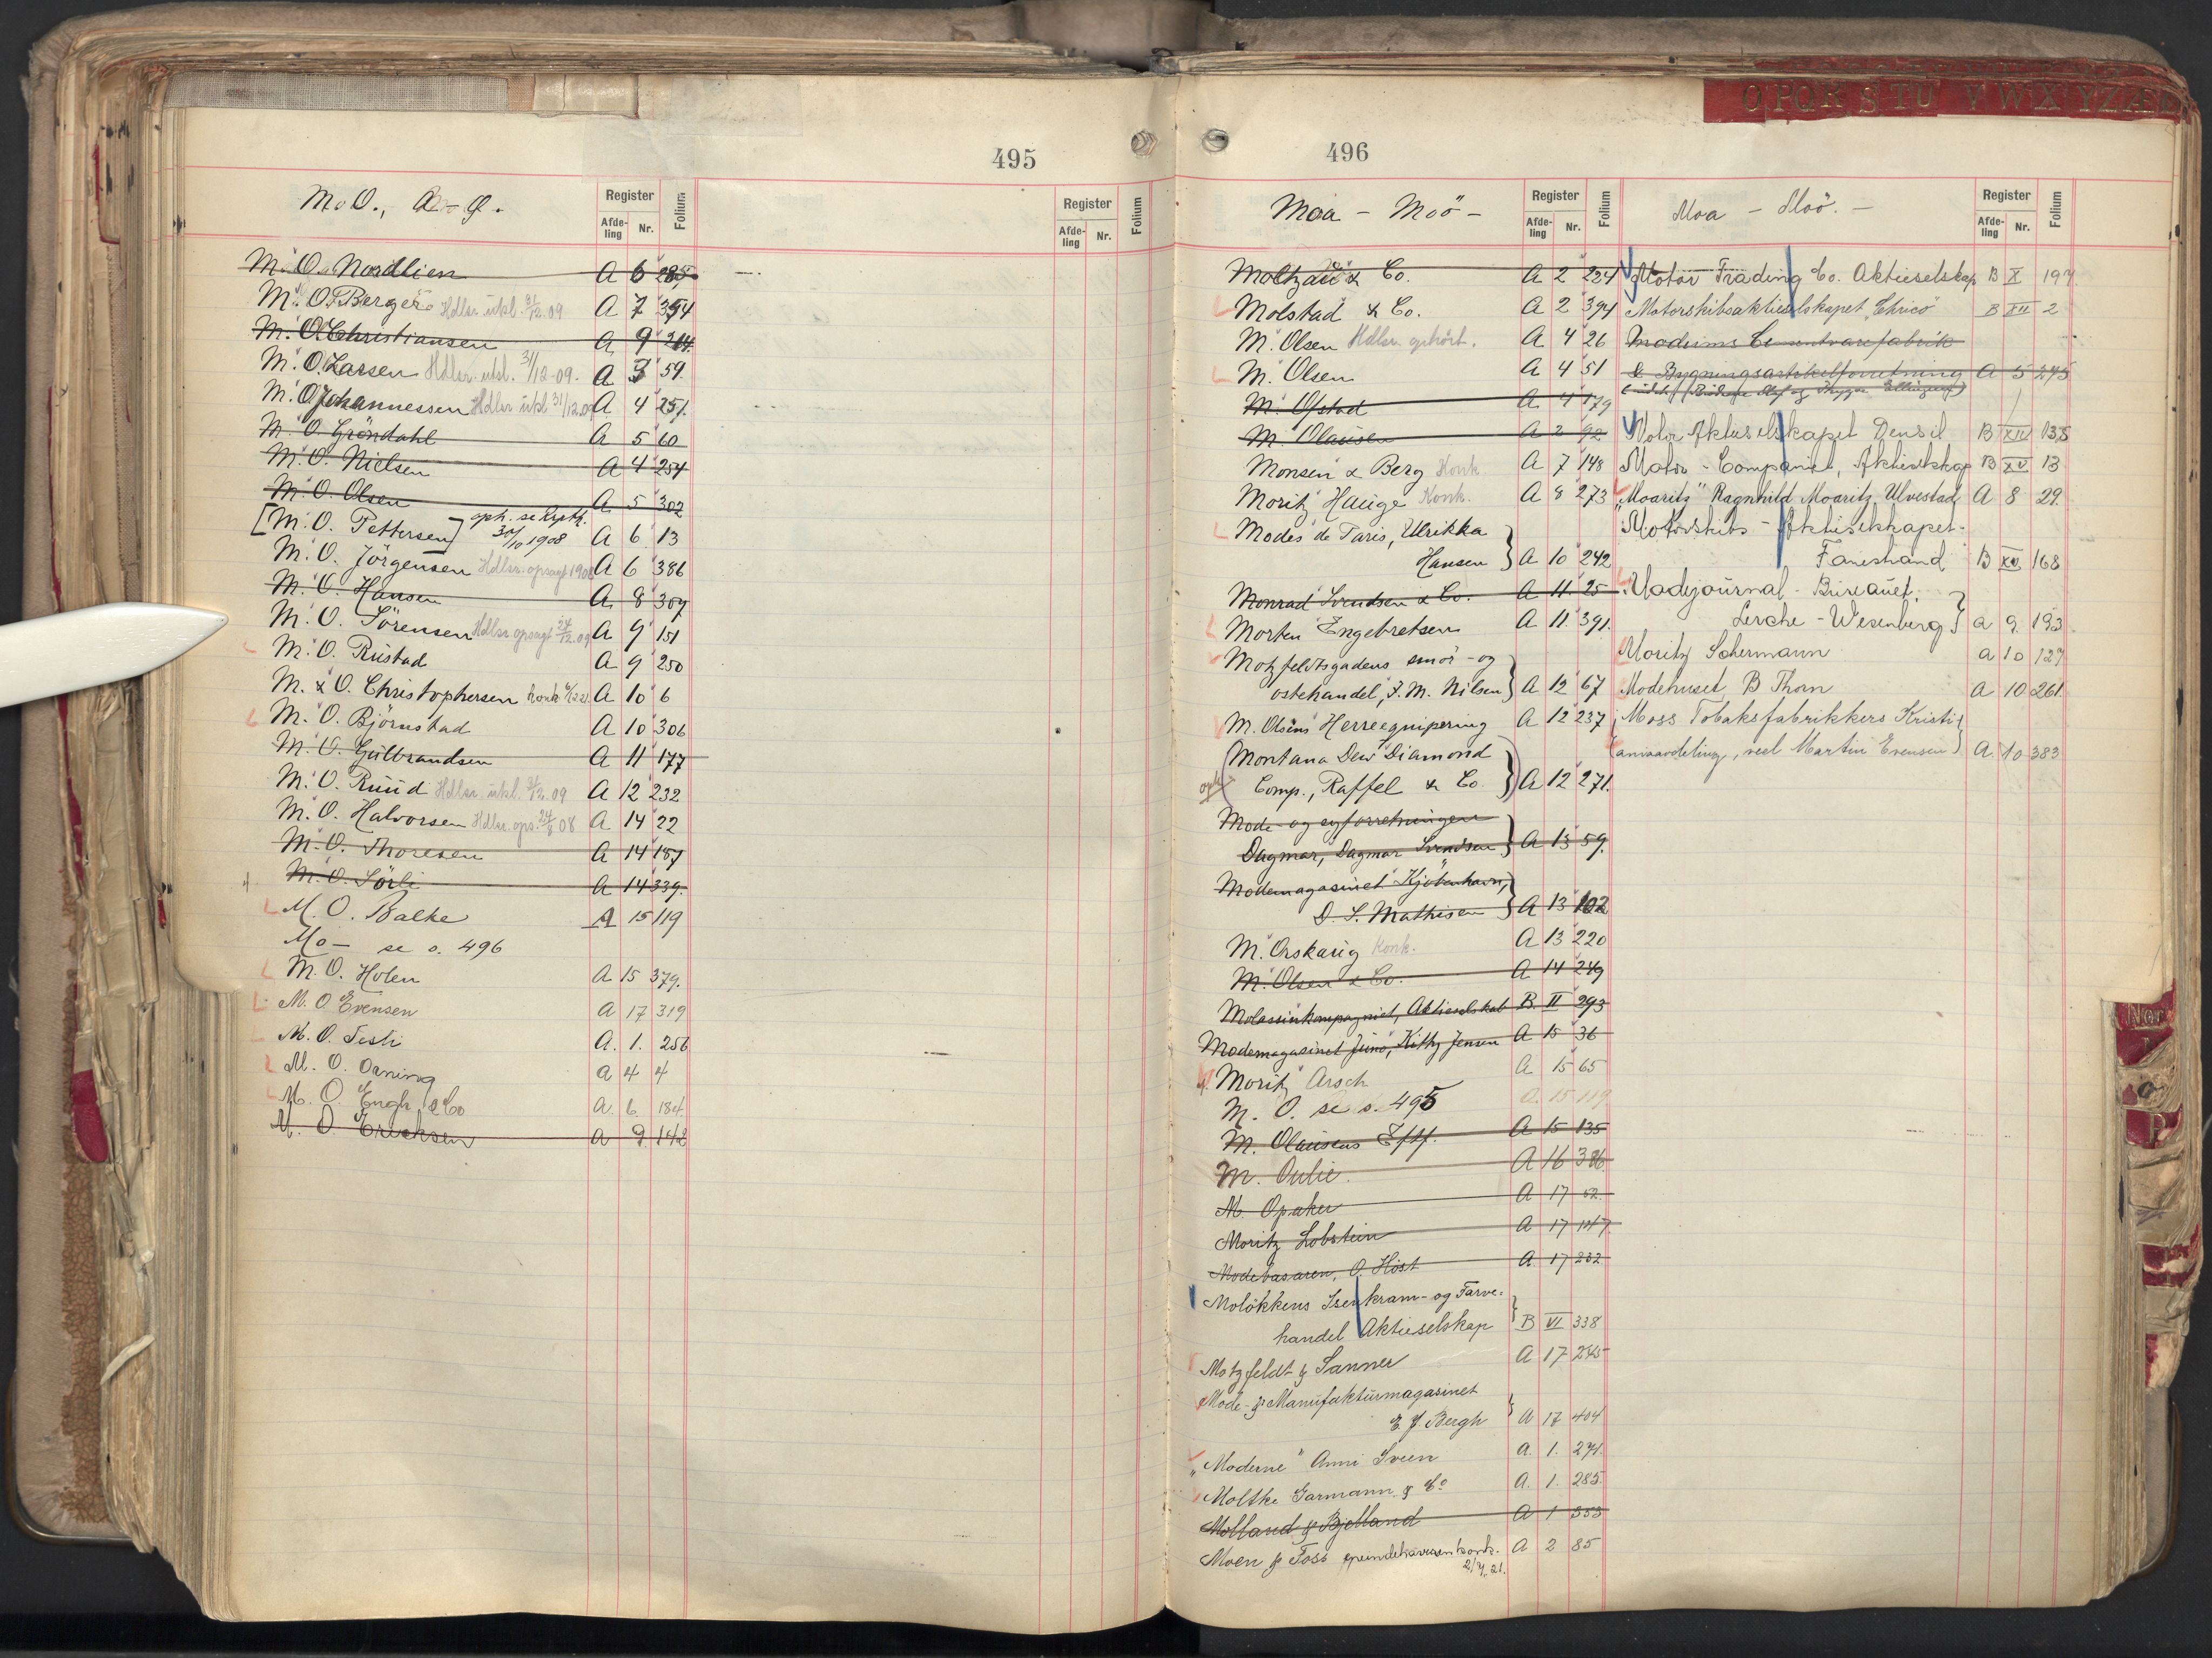 495
M.O., A-Ø.
Register
Afde-ling Nr. Folium
Register
Afde-ling Nr. Folium
M. O. Nordlien A 6 285
M. O. Berger Hdlsr. utkl. 31/12.09 A 7 354
M. O. Christiansen A 9 214
M. O. Larsen Hdlsr. utkl. 31/12-09. A 3 59
M. O. Johannessen Hdlsr utkl 31/12.09 A 4 251
M. O. Gröndahl A 5 60
M. O. Nielsen A 4 254
M. O. Olsen A 5 302
[M. O. Pettersen] oph. se Rgstr. 30/10 1908 A 6 13
M. O. Jörgensen Hdlsr. opsagt 1908 A 6 386
M. O. Hansen A 8 307
M. O. Sörensen Hdlsr. opsagt 24/12.09 A 9 151
M. O. Rustad A 9 250
M. & O. Christophersen A 10 6
M. O. Björnstad A 10 306
M. O. Gulbrandsen A 11 177
M. O. Ruud Hdlsr. utkl. 31/12.09 A 12 232
M. O. Halvorsen Hdlsr. ops. 24/8 08 A 14 22
M. O. Thoresen A 14 187
M. O. Sörli A 14 339.
M. O. Balke A 15 119
Mo- se s. 496
M. O. Holen A 15 379.
M. O. Evensen A 17 319
M. O. A. 1. 256
M. O. Orning A 4 4
M. O. Engh & Co A. 6 184
M. O. Ericksen A 9 142
496
OPQRSTUVWXYZÆ
Moa - Moö -
Register
Afde-ling Nr. Folium
Moltzau & Co. A 2 234
Molstad & Co. A 2 394
M. Olsen Hdlsr. ophört. A 4 26
M. Olsen A 4 51
M. Ofstad A 4 179
M. Olausen A 2 92
Monsen & Berg Konk. A 7 148
Moritz Hauge Konk. A 8 273
Modes de Paris, Ulrikka
Hansen A 10 242
Monrad Svendsen & Co. A 11 25
Morten Engebretsen A 11 391.
Motzfeldtsgadens smör- og
ostehandel, J. M. Nilsen A 12 67
M. Olsens Herreequipering A 12 237
Montana Dew Diamond
Comp., Raffel & Co. A 12 271.
Mode- og syforretningen
Dagmar, Dagmar Svendsen A 13 59.
Modemagasinet Kjöbenhavn,
D. S. Mathisen A 13 102
M. Orskaug Konk. A 13 220
M. Olsen & Co. A 14 249
Molassinkompagniet, Aktieselskab B. II 293
Modemagasinet Juno, Kitty Jensen A 15 36
Moritz Arsch A 15 65
M. O. se s. 495 A. 15 119
M. Olausens Eftf. A 15 135
M. Oulie. A 16 386
M. Opaker A 17 52.
Moritz Lobstein A 17 147
Modebasaren, O. Höst A. 17 232
Molökkens Isenkram- og Farve-
handel Aktieselskap B VI 338
Motzfeldt & Sanner A 17 245
Mode- & Manufakturmagasinet
E J. Bergh A 17 404
"Moderne" Anni Sveen A. 1. 271.
Moltke Garmann & Co A. 1. 285.
Molland & Bjelland A 1 353
Moen & Foss konk. 2/4.21. A 2 85
Moa - Moö. -
Register
Afde-ling Nr. Folium
Motor Trading Co. Aktieselskap B X 197
Motorskibsaktieselskapet "Chrico" B XII 2
Modums Cementvarefabrik
& Bygningsartikelforretning A 5 245
Motor Aktieselskapet Densil B XIV 135
Motor-Companiet, Aktieselskap B XV 13
"Moaritz" Ragnhild Moaritz Ulvestad A 8 29.
Motorskibs-Aktieselskapet
Fanestrand B XV. 168
Modejournal-Bureauet,
Lerche-Wesenberg A 9. 193
Moritz Sohermann A 10 127
Modehuset, B Thorn A 10 261
Moss Tobaksfabrikkers Kristi-
aniaavdeling, ved Martin Evensen A. 10 383